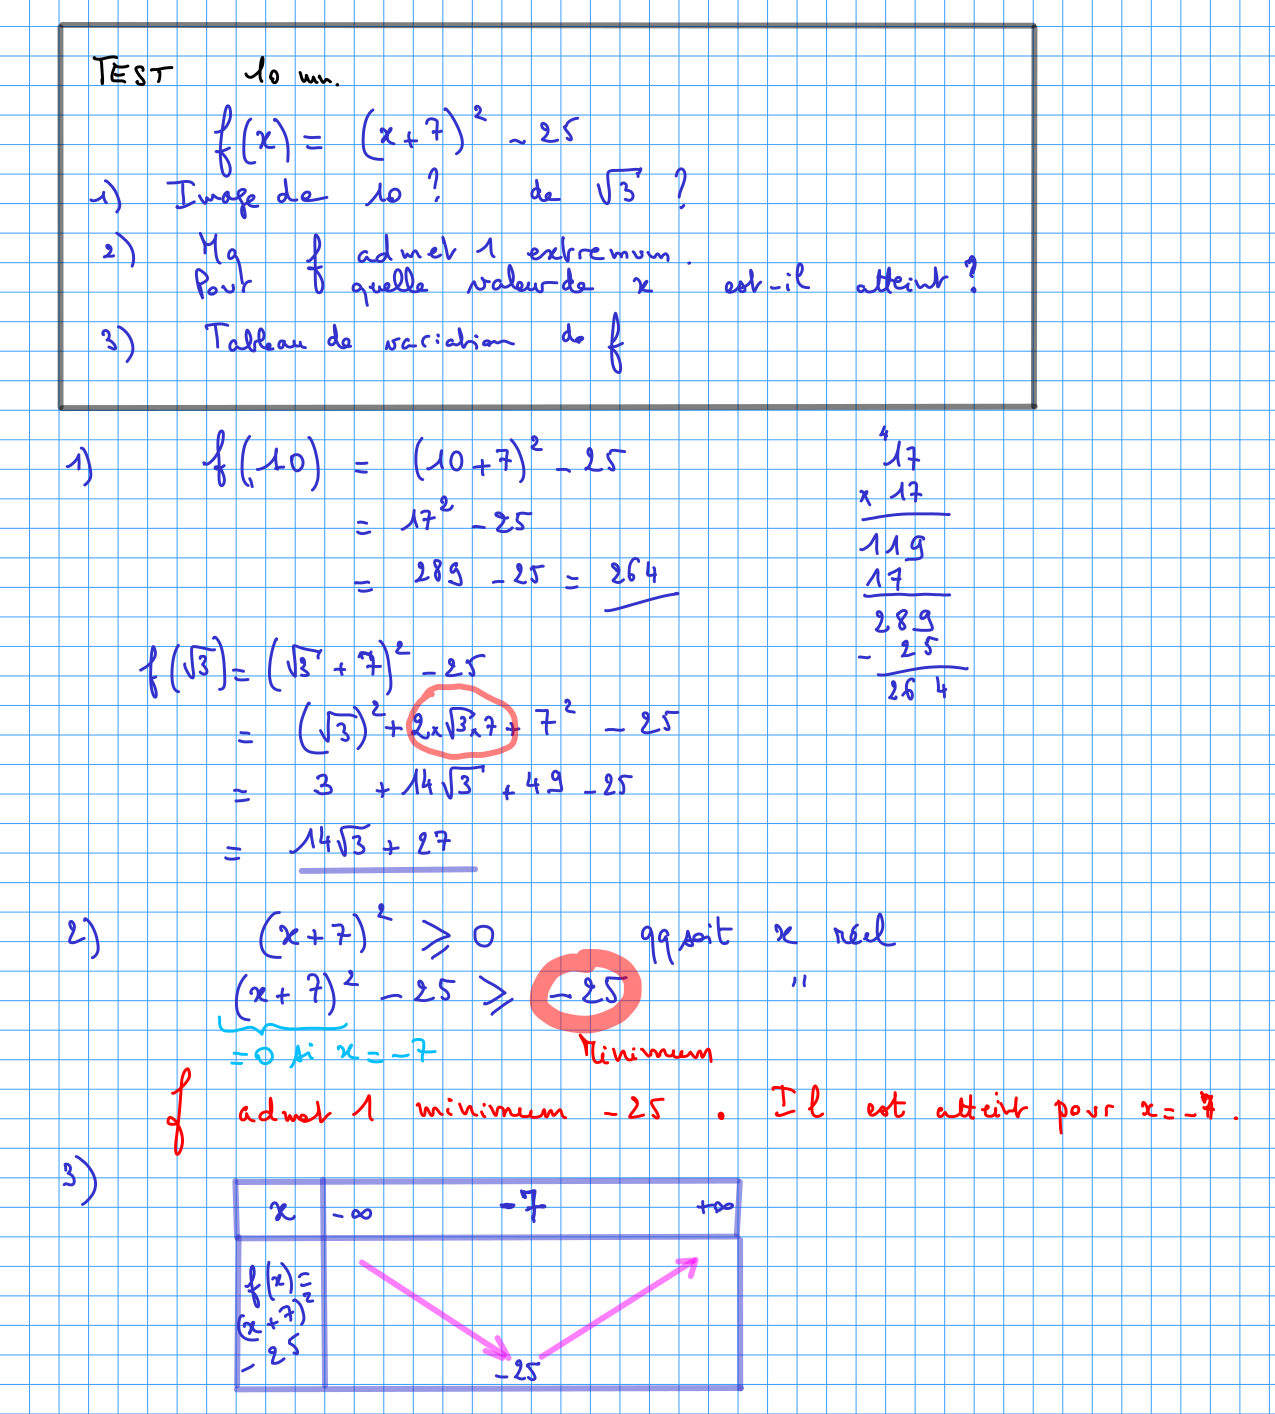 TEST 10 mn.
f(x) = (x+7)² - 25
1) Image de 10 ? de √3 ?
2) Mq f admet 1 extremum.
Pour quelle valeur de x est-il atteint ?
3) Tableau de variation de f
1) f(10) = (10+7)² - 25
= 17² - 25
= 289 - 25 = 264
4
17
x 17
119
17
289
- 25
264
f(√3) = (√3 + 7)² - 25
= (√3)² + 2×√3×7 + 7² - 25
= 3 + 14√3 + 49 - 25
= 14√3 + 27
2) (x+7)² ⩾ 0 qq soit x réel
(x+7)² - 25 ⩾ -25 "
=0 si x = -7 Minimum
f admet 1 minimum -25 . Il est atteint pour x = -7.
3)
x -∞ -7 +∞
f(x) =
(x+7)²
- 25
-25